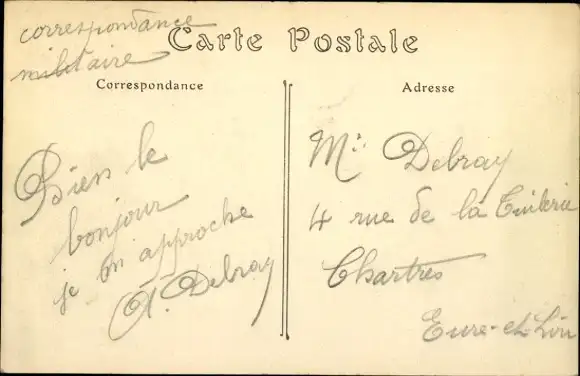 correspondance
militaire
Carte Postale
Correspondance
Bien le
bonjour
je m'approche
A. Debray
Adresse
Debray
4 rue de la Tuilerie
Chartres
Eure-et-Loir